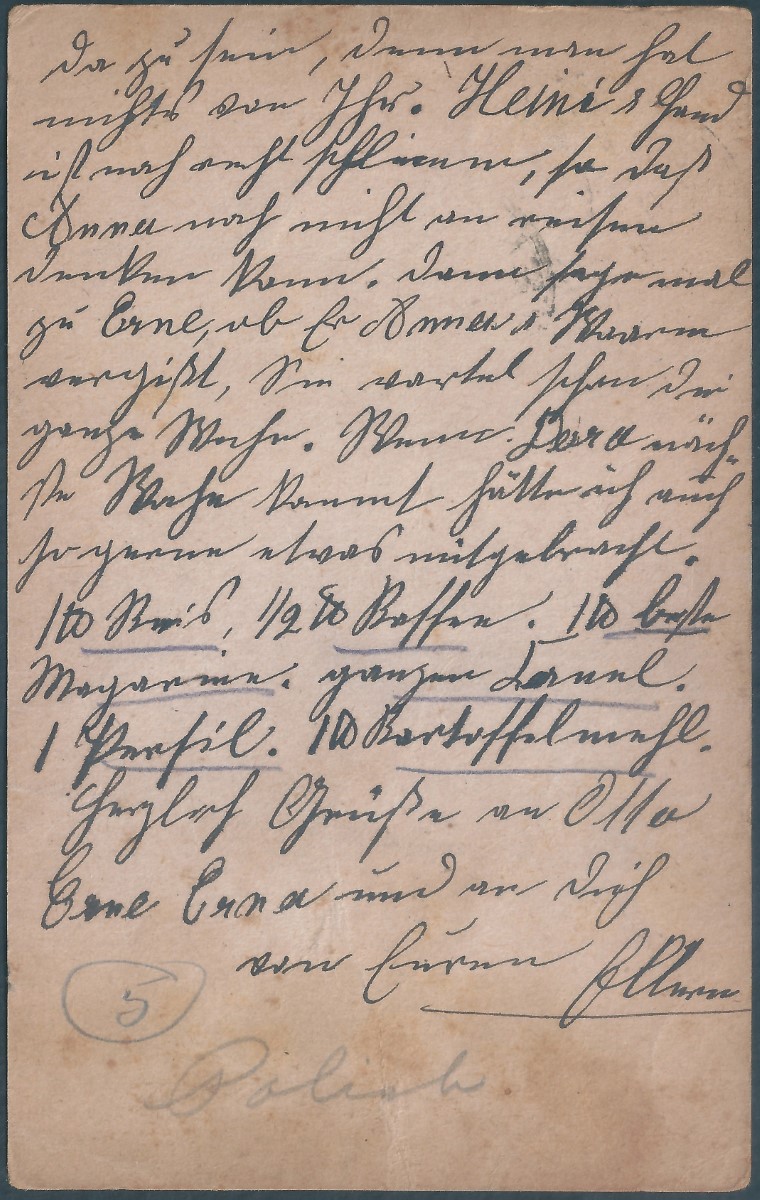 da zu sein, denn man hat
nichts von Ihr. Heini's Hand
ist noch recht schlimm, so daß
Anna noch nicht an reisen
denken kann. Dann sage mal
zu Erne, ob Er Anna's Waaren
vergißt, Sie wartet schon die
ganze Woche. Wenn Dora näch-
ste Woche kommt hätte ich auch
so gerne etwas mitgebracht.
1 ℔ Reis, 1/2 ℔ Kaffee. 1 ℔ beste
Magarine. ganzen Canel.
1 Persil. 1 ℔ Kartoffelmehl.
Herzlich Grüße an Otto
Erne Erna und an Dich
von Euren Eltern
5